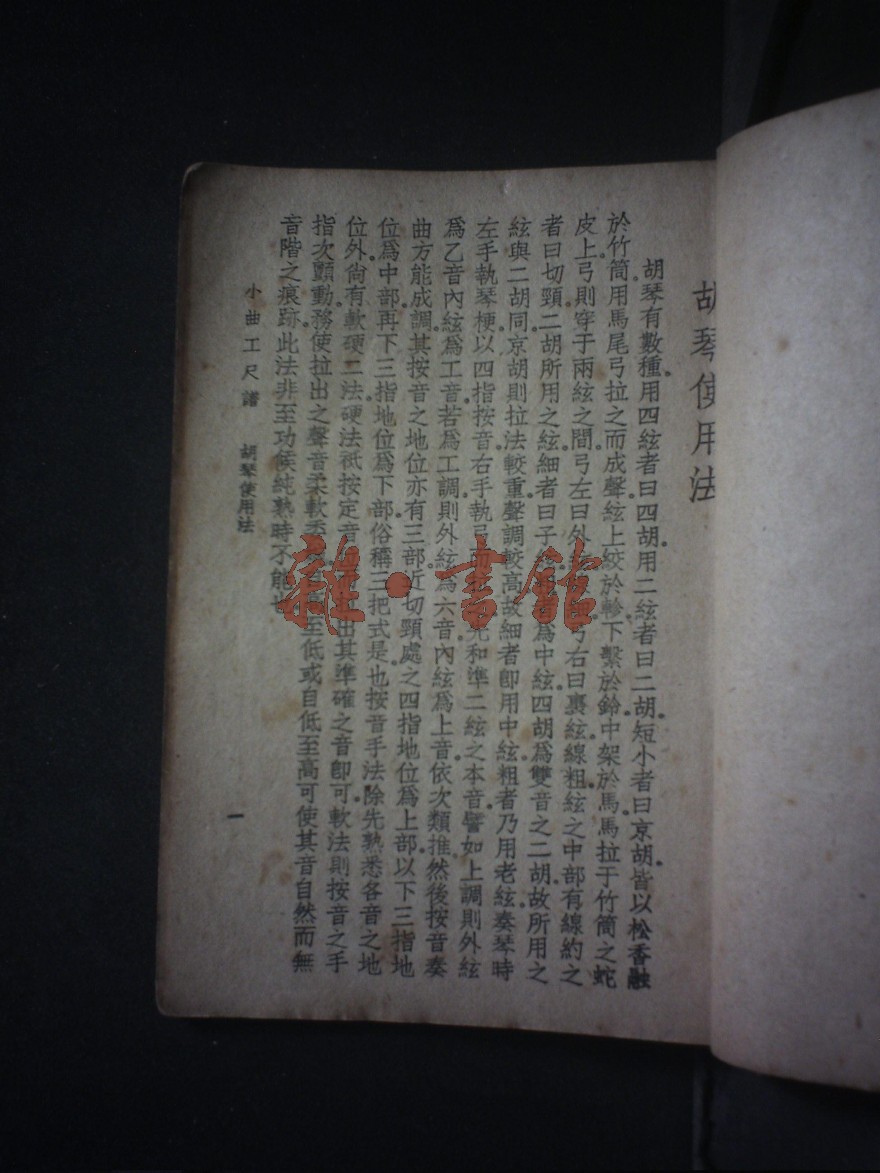 胡琴使用法
胡琴有數種。用四絃者曰四胡。用二絃者曰二胡。短小者曰京胡。皆以松香融
於竹筒。用馬尾弓拉之而成聲。絃上絞於軫。下繫於鈴。中架於馬。馬拉于竹筒之蛇
皮上。弓則穿于兩絃之間。弓左曰外弓右曰裏絃。線粗絃之中部有線約之
者曰切頸。二胡所用之絃。細者曰子爲中絃。四胡爲雙音之二胡。故所用之
絃與二胡同。京胡則拉法較重。聲調較高。故細者卽用中絃。粗者乃用老絃。奏琴時
左手執琴梗。以四指按音。右手執弓而先和準二絃之本音。譬如上調則外絃
爲乙音。內絃爲工音。若爲工調則外絃爲六音。內絃爲上音。依次類推。然後按音奏
曲。方能成調。其按音之地位亦有三部。近切頸處之四指地位爲上部。以下三指地
位爲中部。再下三指地位爲下部。俗稱三把式是也。按音手法除先熟悉各音之地
位外。尙有軟硬二法。硬法祇按定音出其準確之音卽可。軟法則按音之手
指次顫動。務使拉出之聲音柔軟至低或自低至高。可使其音自然而無
音階之痕跡。此法非至功候純熟時不能也
小曲工尺譜 胡琴使用法
一
雜·書館